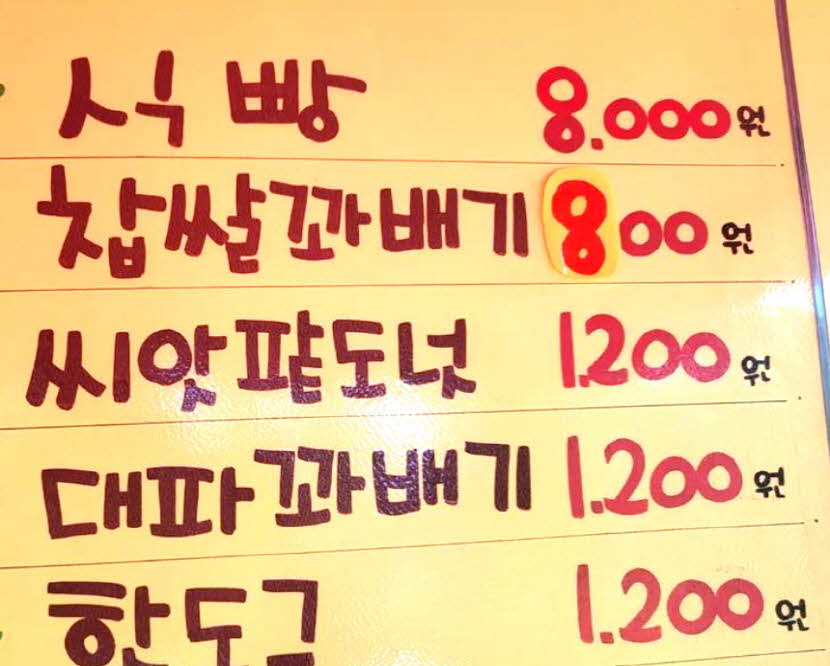 식빵 8.000원
찹쌀꽈배기 800원
씨앗팥도넛 1.200원
대파꽈배기 1.200원
핫도그 1.200원